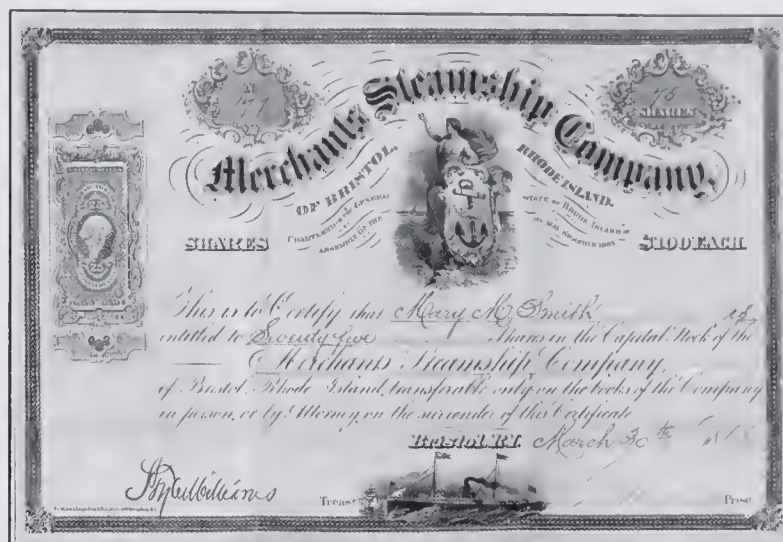 Merchants Steamship Company,
OF BRISTOL, RHODE ISLAND.
CHARTERED BY THE GENERAL ASSEMBLY OF THE STATE OF RHODE ISLAND
75
SHARES
SHARES $100 EACH
This is to Certify that Mary M. Smith is
entitled to Seventy five Shares in the Capital Stock of the
Merchants Steamship Company,
of Bristol, Rhode Island, transferable only on the books of the Company
in person, or by Attorney, on the surrender of this Certificate
Bristol, R.I. March 30th
Treas
Pres